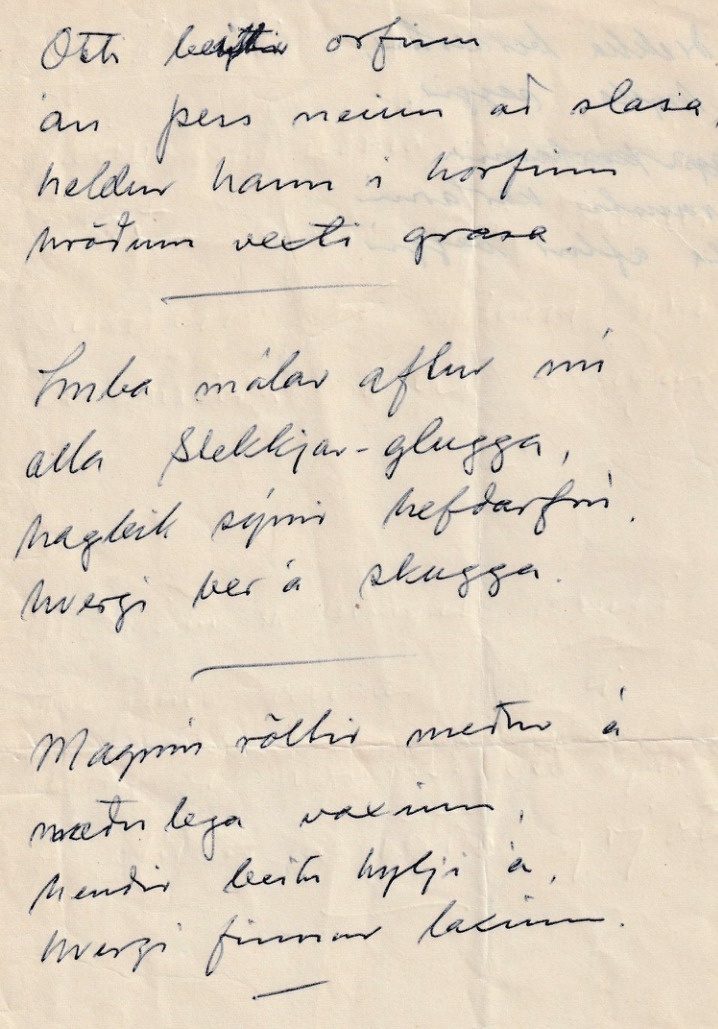 Otti beitir orfinu
án þess neinn að slasa,
heldur hann í horfinu
hröðum vexti grasa
Imba málar aftur nú
alla Stekkjar-glugga,
hagleik sýnir hefðarfrú.
hvergi ber á skugga.
Magnús röltir meður á
mæðulega vaxinn,
hendir beitu hylji á,
hvergi finnur laxinn.